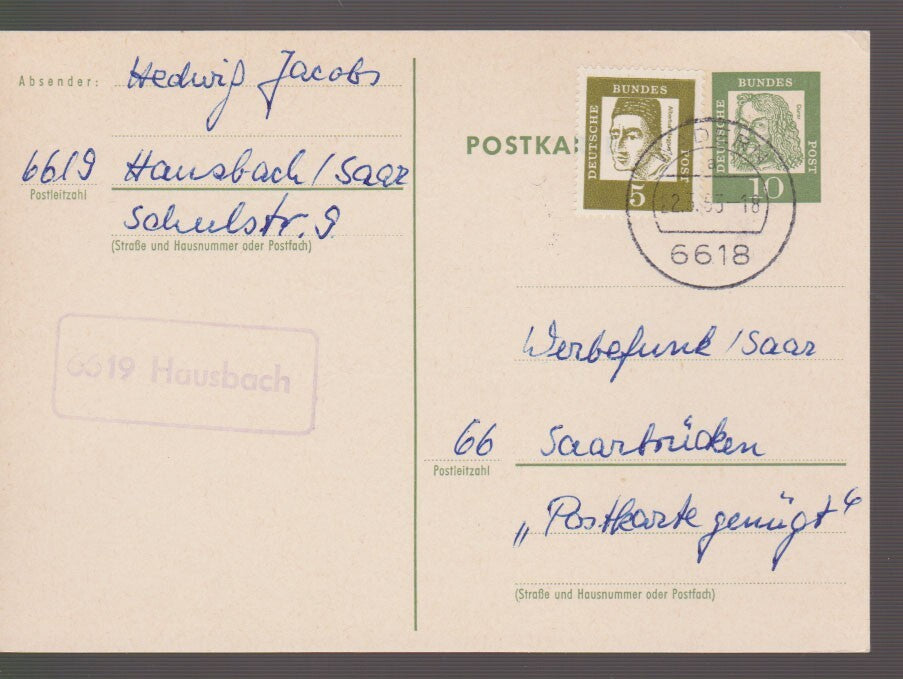 Absender: Hedwig Jacobs
6619 Hausbach / Saar
Postleitzahl
Schulstr. 9
(Straße und Hausnummer oder Postfach)
6619 Hausbach
POSTKA
DEUTSCHE BUNDES POST
5
DEUTSCHE BUNDES POST
Dürer
10
6618
Werbefunk / Saar
66 Saarbrücken
Postleitzahl
„Postkarte genügt“
(Straße und Hausnummer oder Postfach)